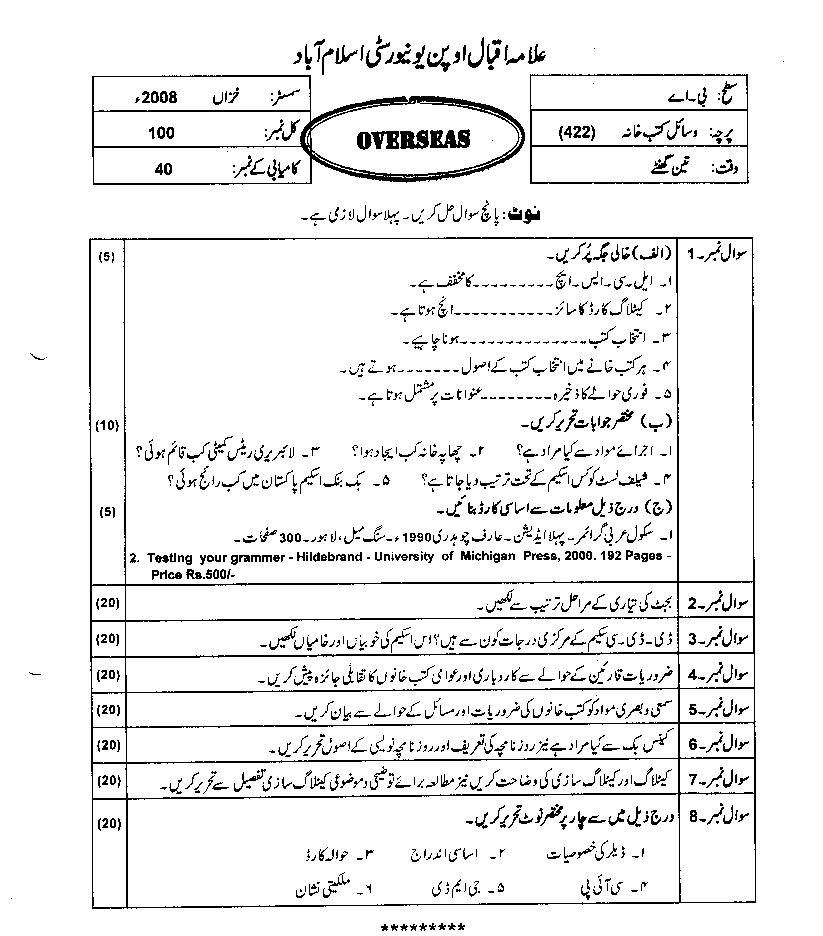 علامہ اقبال اوپن یونیورسٹی اسلام آباد
سطح: بی۔اے
پرچہ: وسائل کتب خانہ (422)
وقت: تین گھنٹے
OVERSEAS
سمسٹر: خزاں 2008ء
کل نمبر: 100
کامیابی کے نمبر: 40
نوٹ: پانچ سوال حل کریں۔ پہلا سوال لازمی ہے۔
سوال نمبر۔1 (الف) خالی جگہ پُر کریں۔ (5)
۱۔ ایل۔سی۔ایس۔ایچ ---------کا مخفف ہے۔
۲۔ کیٹلاگ کارڈ کا سائز----------انچ ہوتا ہے۔
۳۔ انتخاب کتب--------------ہونا چاہیے۔
۴۔ ہر کتب خانے میں انتخاب کتب کے اصول-------ہوتے ہیں۔
۵۔ فوری حوالے کا ذخیرہ---------عنوانات پر مشتمل ہوتا ہے۔
(ب) مختصر جوابات تحریر کریں۔ (10)
۱۔ اجرائے مواد سے کیا مراد ہے؟ ۲۔ چھاپہ خانہ کب ایجاد ہوا؟ ۳۔ لائبریری ریٹس کمیٹی کب قائم ہوئی؟
۴۔ شیلف لسٹ کو کس اسکیم کے تحت ترتیب دیا جاتا ہے؟ ۵۔ بک بنک اسکیم پاکستان میں کب رائج ہوئی؟
(ج) درج ذیل معلومات سے اساسی کارڈ بنائیں۔ (5)
۱۔ سکول عربی گرائمر۔ پہلا ایڈیشن۔ عارف چوہدری 1990ء۔ سنگ میل، لاہور۔ 300 صفحات۔
2. Testing your grammer - Hildebrand - University of Michigan Press, 2000. 192 Pages -
Price Rs.500/-
سوال نمبر۔2 بجٹ کی تیاری کے مراحل ترتیب سے لکھیں۔ (20)
سوال نمبر۔3 ڈی۔ڈی۔سی سکیم کے مرکزی درجات کون سے ہیں؟ اس اسکیم کی خوبیاں اور خامیاں لکھیں۔ (20)
سوال نمبر۔4 ضروریات قارئین کے حوالے سے کاروباری اور عوامی کتب خانوں کا تقابلی جائزہ پیش کریں۔ (20)
سوال نمبر۔5 سمعی و بصری مواد کو کتب خانوں کی ضروریات اور مسائل کے حوالے سے بیان کریں۔ (20)
سوال نمبر۔6 کیش بک سے کیا مراد ہے نیز روز نامچہ کی تعریف اور روز نامچہ نویسی کے اصول تحریر کریں۔ (20)
سوال نمبر۔7 کیٹلاگ اور کیٹلاگ سازی کی وضاحت کریں نیز مطالعہ برائے توضیحی و موضوعی کیٹلاگ سازی تفصیل سے تحریر کریں۔ (20)
سوال نمبر۔8 درج ذیل میں سے چار پر مختصر نوٹ تحریر کریں۔ (20)
۱۔ ڈیلر کی خصوصیات ۲۔ اساسی اندراج ۳۔ حوالہ کارڈ
۴۔ سی آئی پی ۵۔ جی ایم ڈی ۶۔ ملکیتی نشان
*********